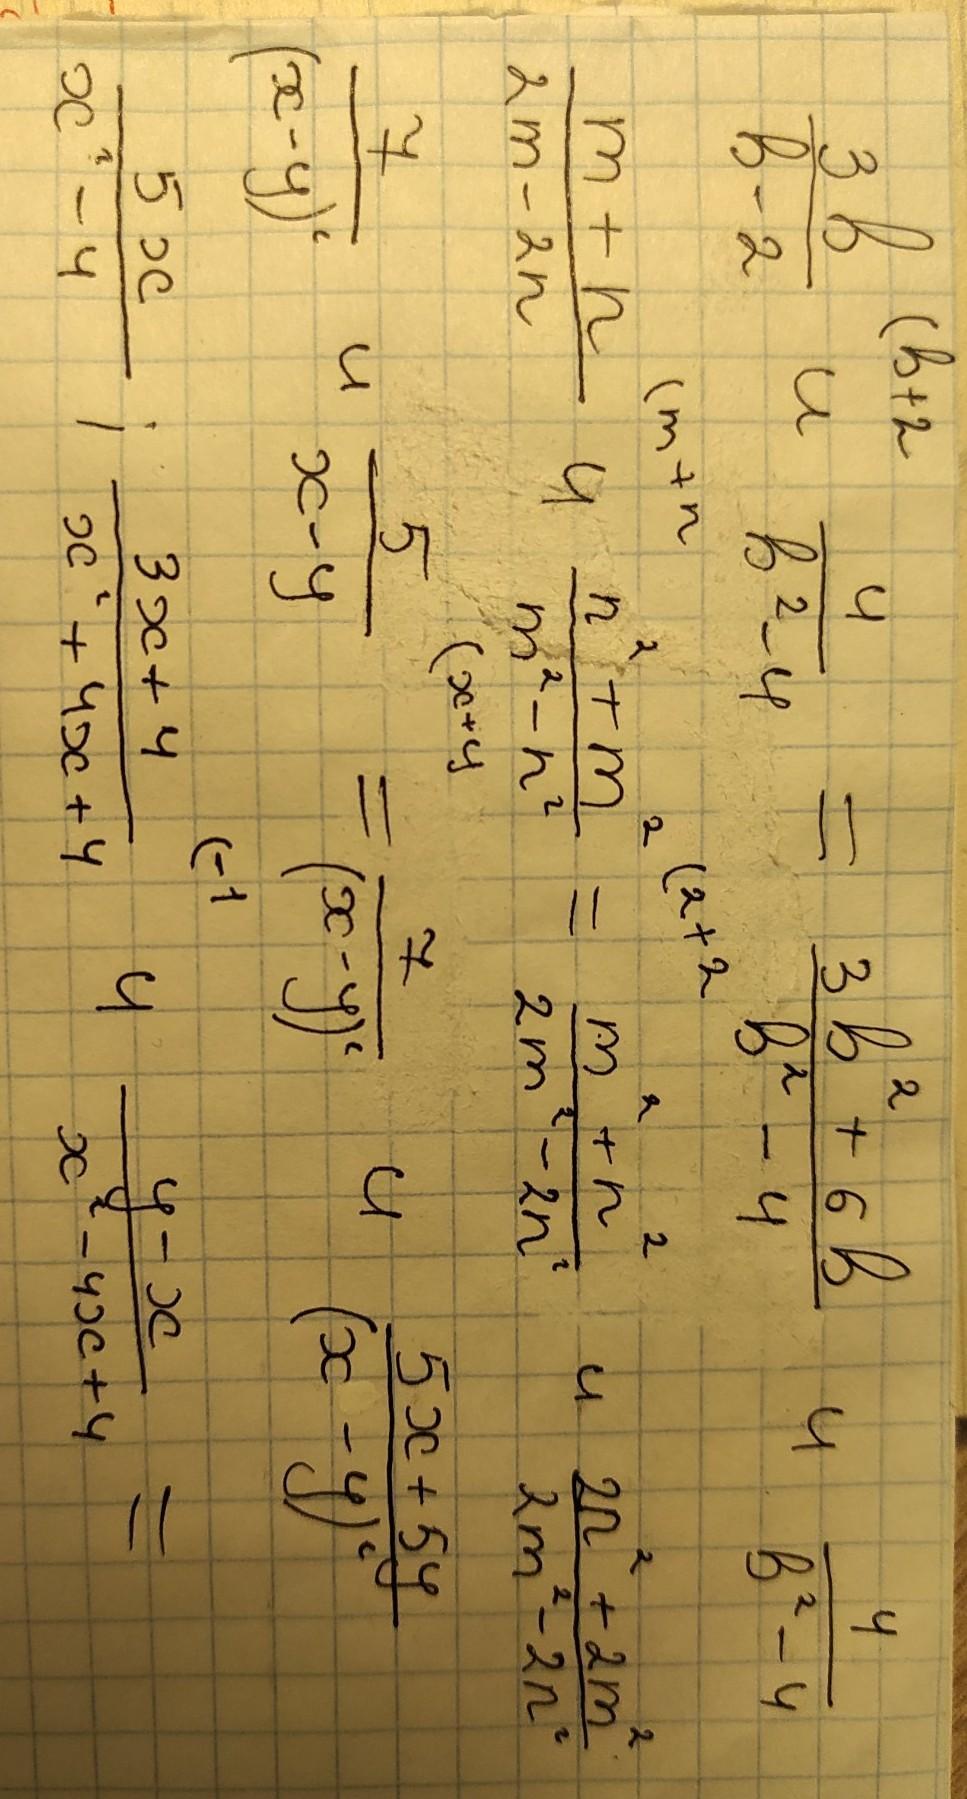 (b+2
3b/(b-2) и 4/(b²-4) = (3b²+6b)/(b²-4) и 4/(b²-4)
(m+n (2+2
(m+n)/(2m-2n) и (n²+m²)/(m²-n²) = (m²+n²)/(2m²-2n²) и (2n²+2m²)/(2m²-2n²)
(x+y
7/(x-y)² и 5/(x-y) = 7/(x-y)² и (5x+5y)/(x-y)²
(-1
5x/(x²-4) ; (3x+4)/(x²+4x+4) и (4-x)/(x²-4x+4) =